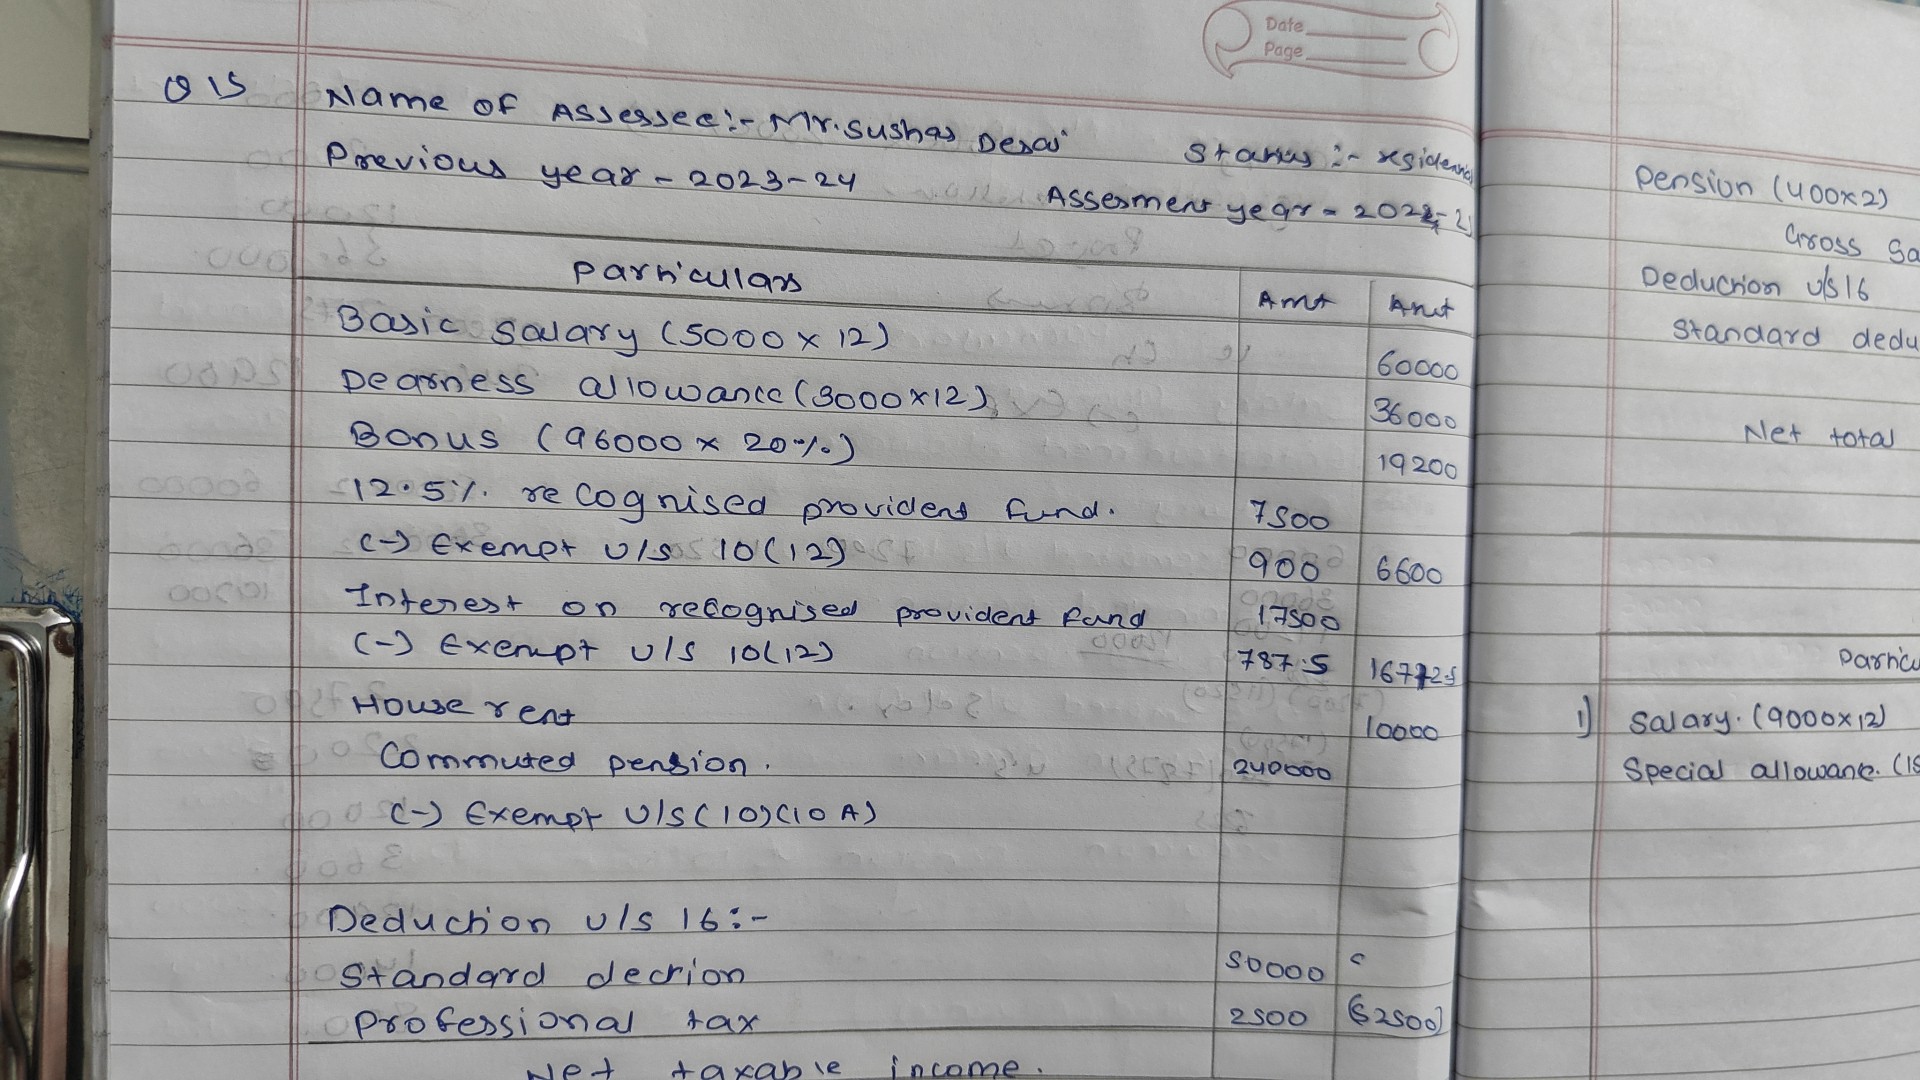 Date
Page
Q 15 Name of Assessee:- Mr. Sushas Desai Status :-
Previous year - 2023-24 Assesment year =
Particulars Amt Amt
Basic salary (5000 x 12) 60000
Dearness allowance (3000 x 12) 36000
Bonus (96000 x 20%) 19200
12.5% recognised provident fund. 7500
(-) Exempt u/s 10(12) 900 6600
Interest on recognised provident fund 17500
(-) Exempt u/s 10(12) 787.5
House rent 10000
Commuted pension. 240000
(-) Exempt u/s (10)(10A)
Deduction u/s 16:-
Standard dection 50000
Professional tax 2500 (52500)
Net taxable income.
Pension (400x2)
Gross Sa
Deduction u/s 16
Standard dedu
Net total
Particu
1) Salary. (9000x12)
Special allowance. (15